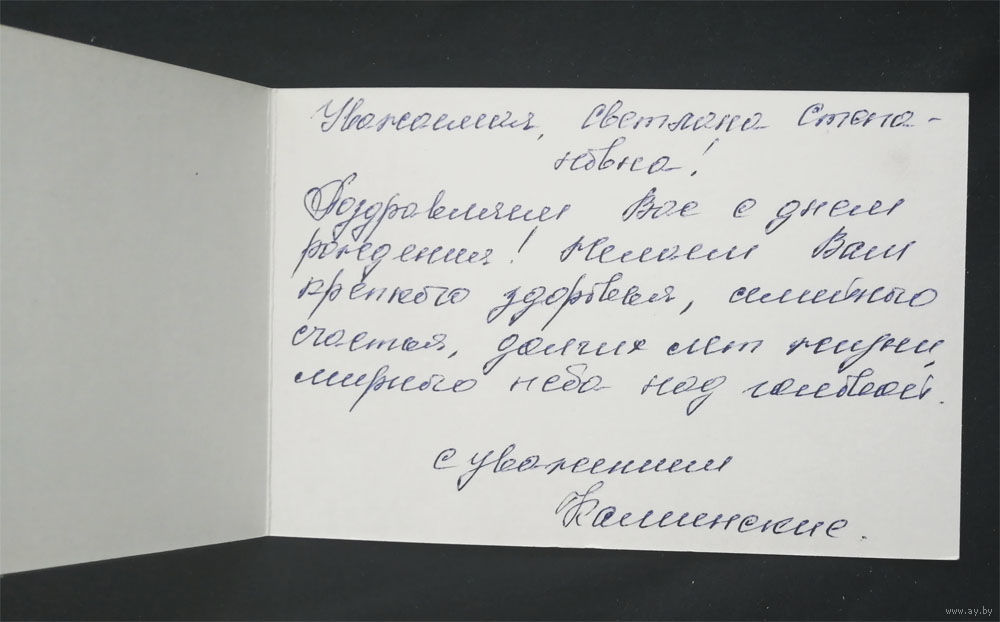 Уважаемая, Светлана Степа-
новна!
Поздравляем Вас с днем
рождения! Желаем Вам
крепкого здоровья, семейного
счастья, долгих лет жизни,
мирного неба над головой.
с уважением
Калинские.
www.ay.by